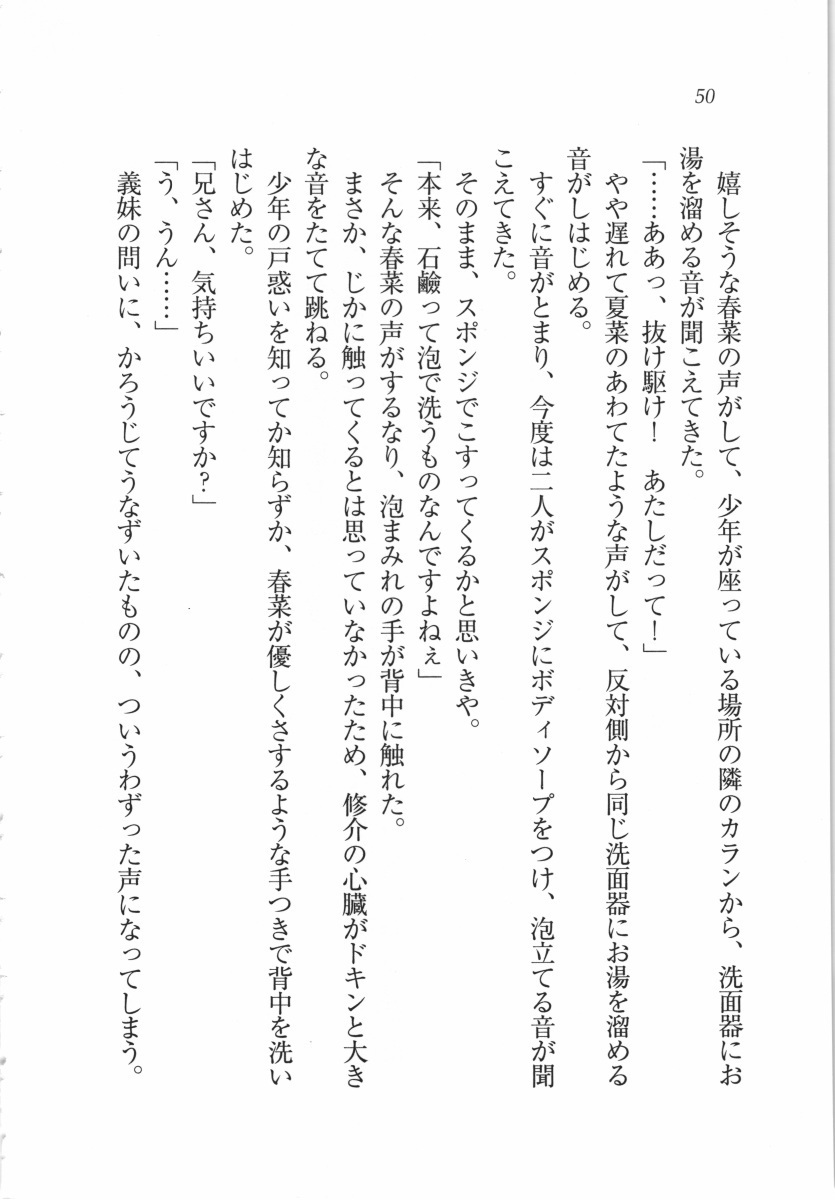 50
嬉しそうな春菜の声がして、少年が座っている場所の隣のカランから、洗面器にお
湯を溜める音が聞こえてきた。
「……ああっ、抜け駆け！　あたしだって！」
やや遅れて夏菜のあわてたような声がして、反対側から同じ洗面器にお湯を溜める
音がしはじめる。
すぐに音がとまり、今度は二人がスポンジにボディソープをつけ、泡立てる音が聞
こえてきた。
そのまま、スポンジでこすってくるかと思いきや。
「本来、石鹼って泡で洗うものなんですよねぇ」
そんな春菜の声がするなり、泡まみれの手が背中に触れた。
まさか、じかに触ってくるとは思っていなかったため、修介の心臓がドキンと大き
な音をたてて跳ねる。
少年の戸惑いを知ってか知らずか、春菜が優しくさするような手つきで背中を洗い
はじめた。
「兄さん、気持ちいいですか？」
「う、うん……」
義妹の問いに、かろうじてうなずいたものの、ついうわずった声になってしまう。